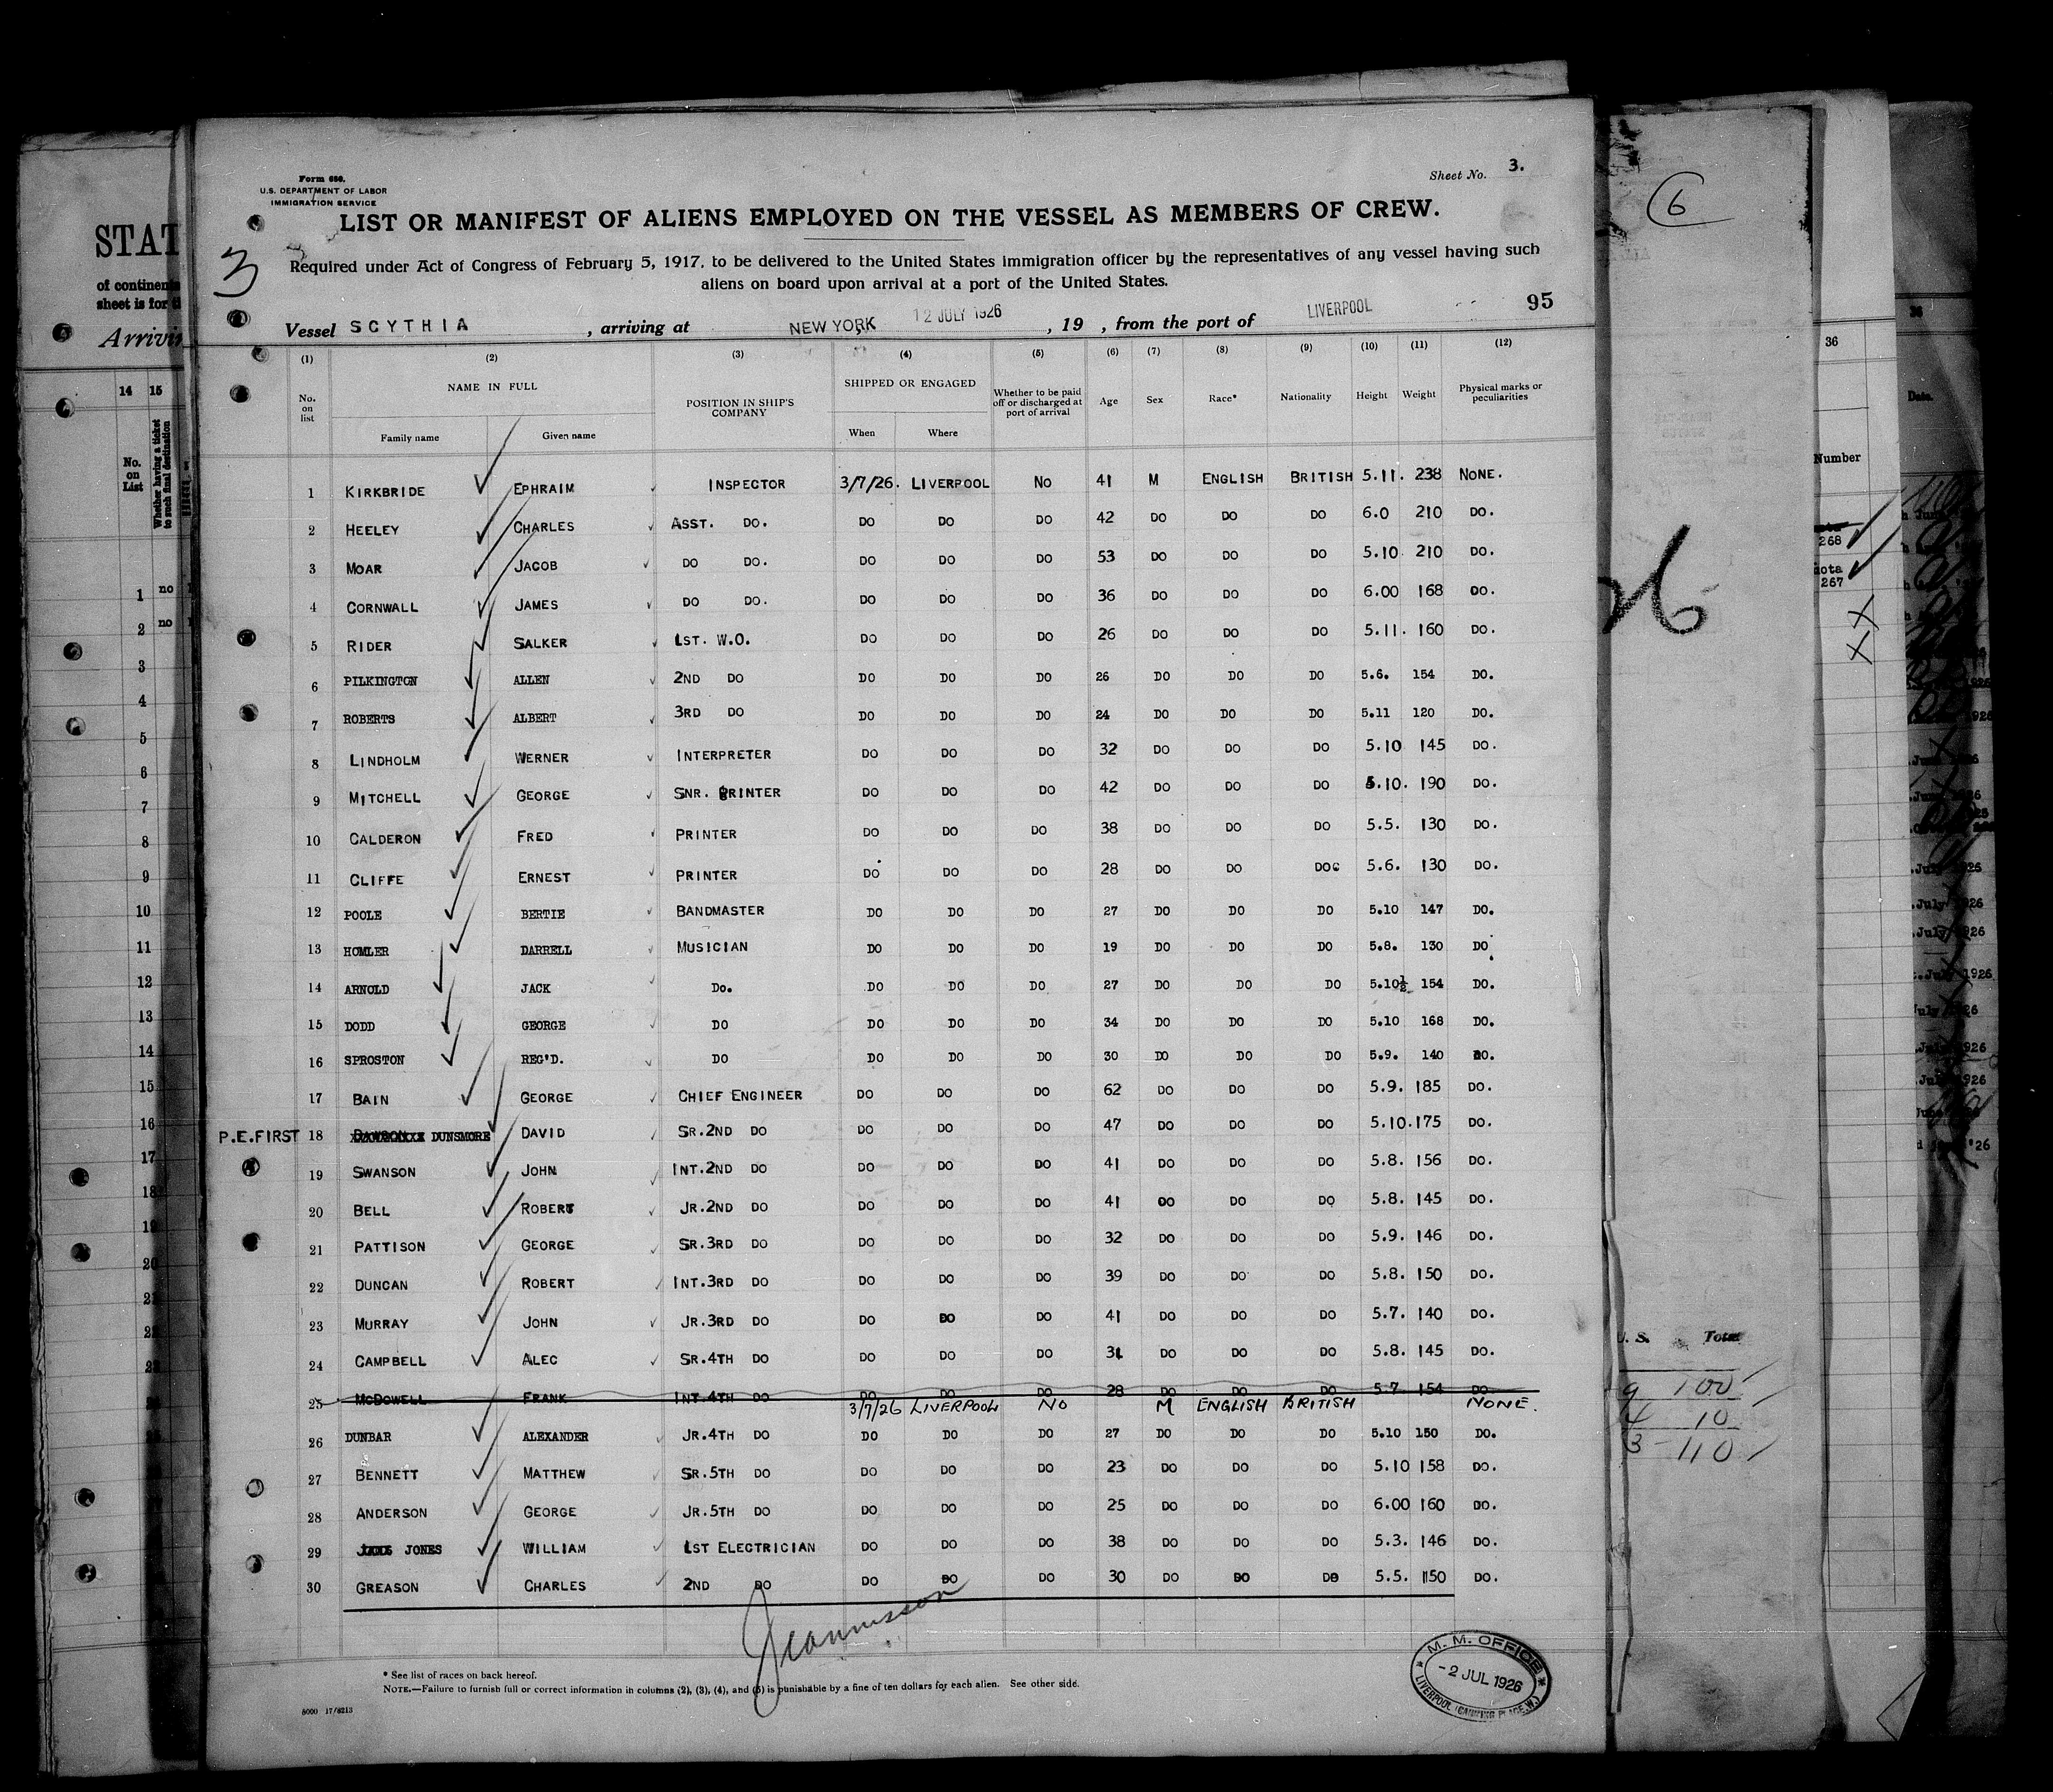 Form 680.
U.S. DEPARTMENT OF LABOR
IMMIGRATION SERVICE
Sheet No. 3.
LIST OR MANIFEST OF ALIENS EMPLOYED ON THE VESSEL AS MEMBERS OF CREW.
3
Required under Act of Congress of February 5, 1917, to be delivered to the United States immigration officer by the representatives of any vessel having such
aliens on board upon arrival at a port of the United States.
95
Vessel SCYTHIA , arriving at NEW YORK 12 JULY 1926 , 19 , from the port of LIVERPOOL
(1) (2) (3) (4) (5) (6) (7) (8) (9) (10) (11) (12)
No. on list NAME IN FULL Family name Given name POSITION IN SHIP'S COMPANY SHIPPED OR ENGAGED When Where Whether to be paid off or discharged at port of arrival Age Sex Race* Nationality Height Weight Physical marks or peculiarities
1 KIRKBRIDE EPHRAIM INSPECTOR 3/7/26. LIVERPOOL NO 41 M ENGLISH BRITISH 5.11. 238 NONE.
2 HEELEY CHARLES ASST. DO. DO DO DO 42 DO DO DO 6.0 210 DO.
3 MOAR JACOB DO DO. DO DO DO 53 DO DO DO 5.10 210 DO.
4 CORNWALL JAMES DO DO. DO DO DO 36 DO DO DO 6.00 168 DO.
5 RIDER SALKER 1ST. W.O. DO DO DO 26 DO DO DO 5.11. 160 DO.
6 PILKINGTON ALLEN 2ND DO DO DO DO 26 DO DO DO 5.6. 154 DO.
7 ROBERTS ALBERT 3RD DO DO DO DO 24 DO DO DO 5.11 120 DO.
8 LINDHOLM WERNER INTERPRETER DO DO DO 32 DO DO DO 5.10 145 DO.
9 MITCHELL GEORGE SNR. PRINTER DO DO DO 42 DO DO DO 5.10. 190 DO.
10 CALDERON FRED PRINTER DO DO DO 38 DO DO DO 5.5. 130 DO.
11 CLIFFE ERNEST PRINTER DO DO DO 28 DO DO DO 5.6. 130 DO.
12 POOLE BERTIE BANDMASTER DO DO DO 27 DO DO DO 5.10 147 DO.
13 HOMLER DARRELL MUSICIAN DO DO DO 19 DO DO DO 5.8. 130 DO.
14 ARNOLD JACK DO. DO DO DO 27 DO DO DO 5.10½ 154 DO.
15 DODD GEORGE DO DO DO DO 34 DO DO DO 5.10 168 DO.
16 SPROSTON REG'D. DO DO DO DO 30 DO DO DO 5.9. 140 DO.
17 BAIN GEORGE CHIEF ENGINEER DO DO DO 62 DO DO DO 5.9. 185 DO.
P.E.FIRST 18 DUNSMORE DAVID SR.2ND DO DO DO DO 47 DO DO DO 5.10. 175 DO.
19 SWANSON JOHN INT.2ND DO DO DO DO 41 DO DO DO 5.8. 156 DO.
20 BELL ROBERT JR.2ND DO DO DO DO 41 DO DO DO 5.8. 145 DO.
21 PATTISON GEORGE SR.3RD DO DO DO DO 32 DO DO DO 5.9. 146 DO.
22 DUNCAN ROBERT INT.3RD DO DO DO DO 39 DO DO DO 5.8. 150 DO.
23 MURRAY JOHN JR.3RD DO DO DO DO 41 DO DO DO 5.7. 140 DO.
24 CAMPBELL ALEC SR.4TH DO DO DO DO 31 DO DO DO 5.8. 145 DO.
25 McDOWELL FRANK INT.4TH DO DO DO DO 28 DO DO DO 5.7. 154 DO.
3/7/26 LIVERPOOL NO M ENGLISH BRITISH NONE.
26 DUNBAR ALEXANDER JR.4TH DO DO DO DO 27 DO DO DO 5.10 150 DO.
27 BENNETT MATTHEW SR.5TH DO DO DO DO 23 DO DO DO 5.10 158 DO.
28 ANDERSON GEORGE JR.5TH DO DO DO DO 25 DO DO DO 6.00 160 DO.
29 JONES WILLIAM 1ST ELECTRICIAN DO DO DO 38 DO DO DO 5.3. 146 DO.
30 GREASON CHARLES 2ND DO DO DO DO 30 DO DO DO 5.5. 150 DO.
* See list of races on back hereof.
NOTE.—Failure to furnish full or correct information in columns (2), (3), (4), and (5) is punishable by a fine of ten dollars for each alien. See other side.
8000 17/8213
M. M. OFFICE
-2 JUL 1926
LIVERPOOL (CANNING PLACE, W.)
STAT
of continent
sheet is for
Arrivin
14 15
No. on List
Whether having a ticket to such final destination
1 no
2 no
3
4
5
6
7
8
9
10
11
12
13
14
15
16
17
18
19
20
21
6
26
U. S. Total
9 100
4 10
3 110
36
Number
268
267
Date.